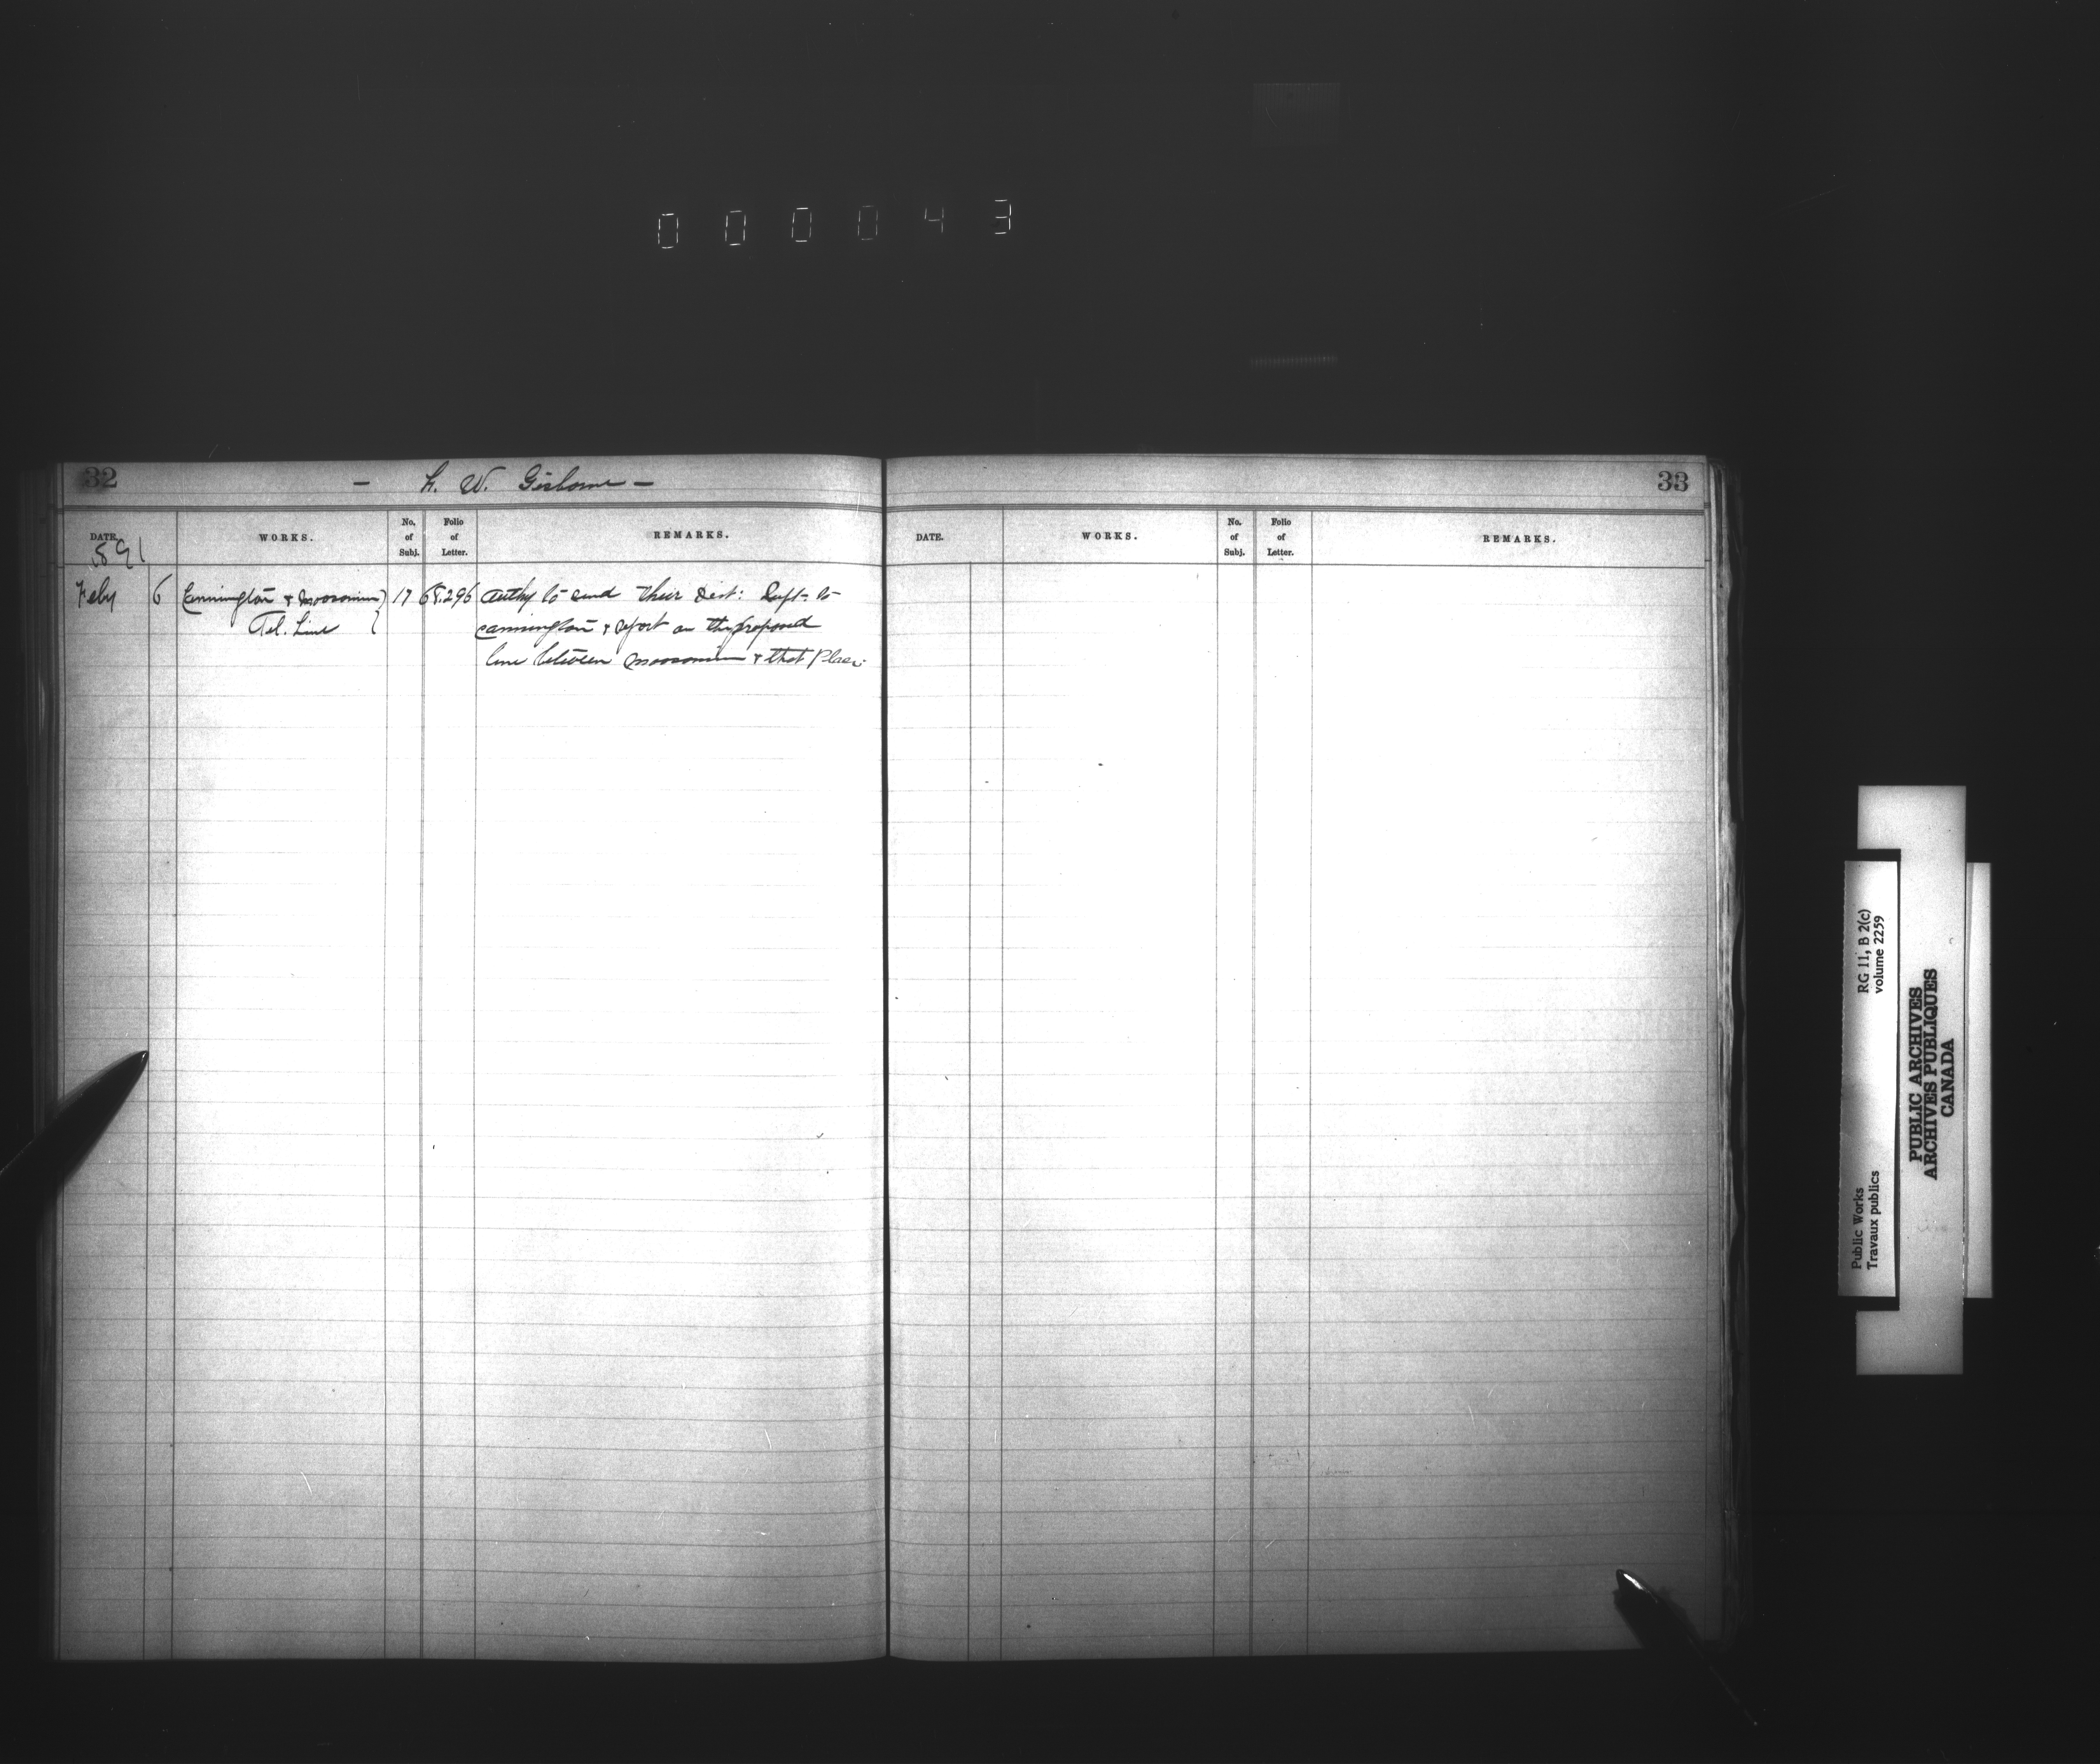 0 0 0 0 4 3
32
- F. W. Gisborne -
33
DATE. WORKS. No. of Subj. Folio of Letter. REMARKS.
DATE. WORKS. No. of Subj. Folio of Letter. REMARKS.
1891
Feby 6 Cannington & Moosomin 17 68.296 Authy to send their Dist: Supt. to
Tel. Line Cannington & report on the proposed
line between Moosomin & that place.
RG 11, B 2(c)
volume 2259
Public Works
Travaux publics
PUBLIC ARCHIVES
ARCHIVES PUBLIQUES
CANADA